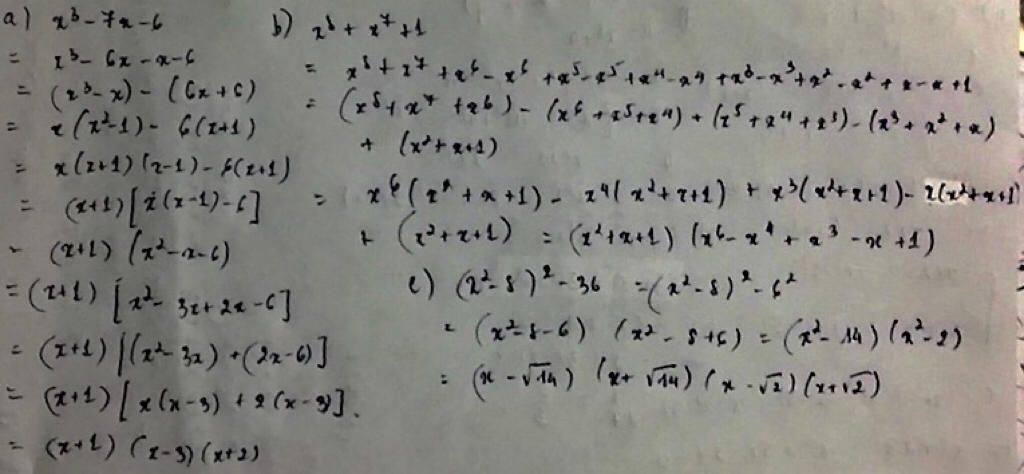 a) x³ - 7x - 6
= x³ - 6x - x - 6
= (x³ - x) - (6x + 6)
= x(x² - 1) - 6(x + 1)
= x(x + 1)(x - 1) - 6(x + 1)
= (x + 1)[x(x - 1) - 6]
= (x + 1)(x² - x - 6)
= (x + 1)[x² - 3x + 2x - 6]
= (x + 1)[(x² - 3x) + (2x - 6)]
= (x + 1)[x(x - 3) + 2(x - 3)].
= (x + 1)(x - 3)(x + 2)
b) x⁸ + x⁷ + 1
= x⁸ + x⁷ + x⁶ - x⁶ + x⁵ - x⁵ + x⁴ - x⁴ + x³ - x³ + x² - x² + x - x + 1
= (x⁸ + x⁷ + x⁶) - (x⁶ + x⁵ + x⁴) + (x⁵ + x⁴ + x³) - (x³ + x² + x)
+ (x² + x + 1)
= x⁶(x² + x + 1) - x⁴(x² + x + 1) + x³(x² + x + 1) - x(x² + x + 1)
+ (x² + x + 1) = (x² + x + 1)(x⁶ - x⁴ + x³ - x + 1)
c) (x² - 8)² - 36 = (x² - 8)² - 6²
= (x² - 8 - 6)(x² - 8 + 6) = (x² - 14)(x² - 2)
= (x - √14)(x + √14)(x - √2)(x + √2)